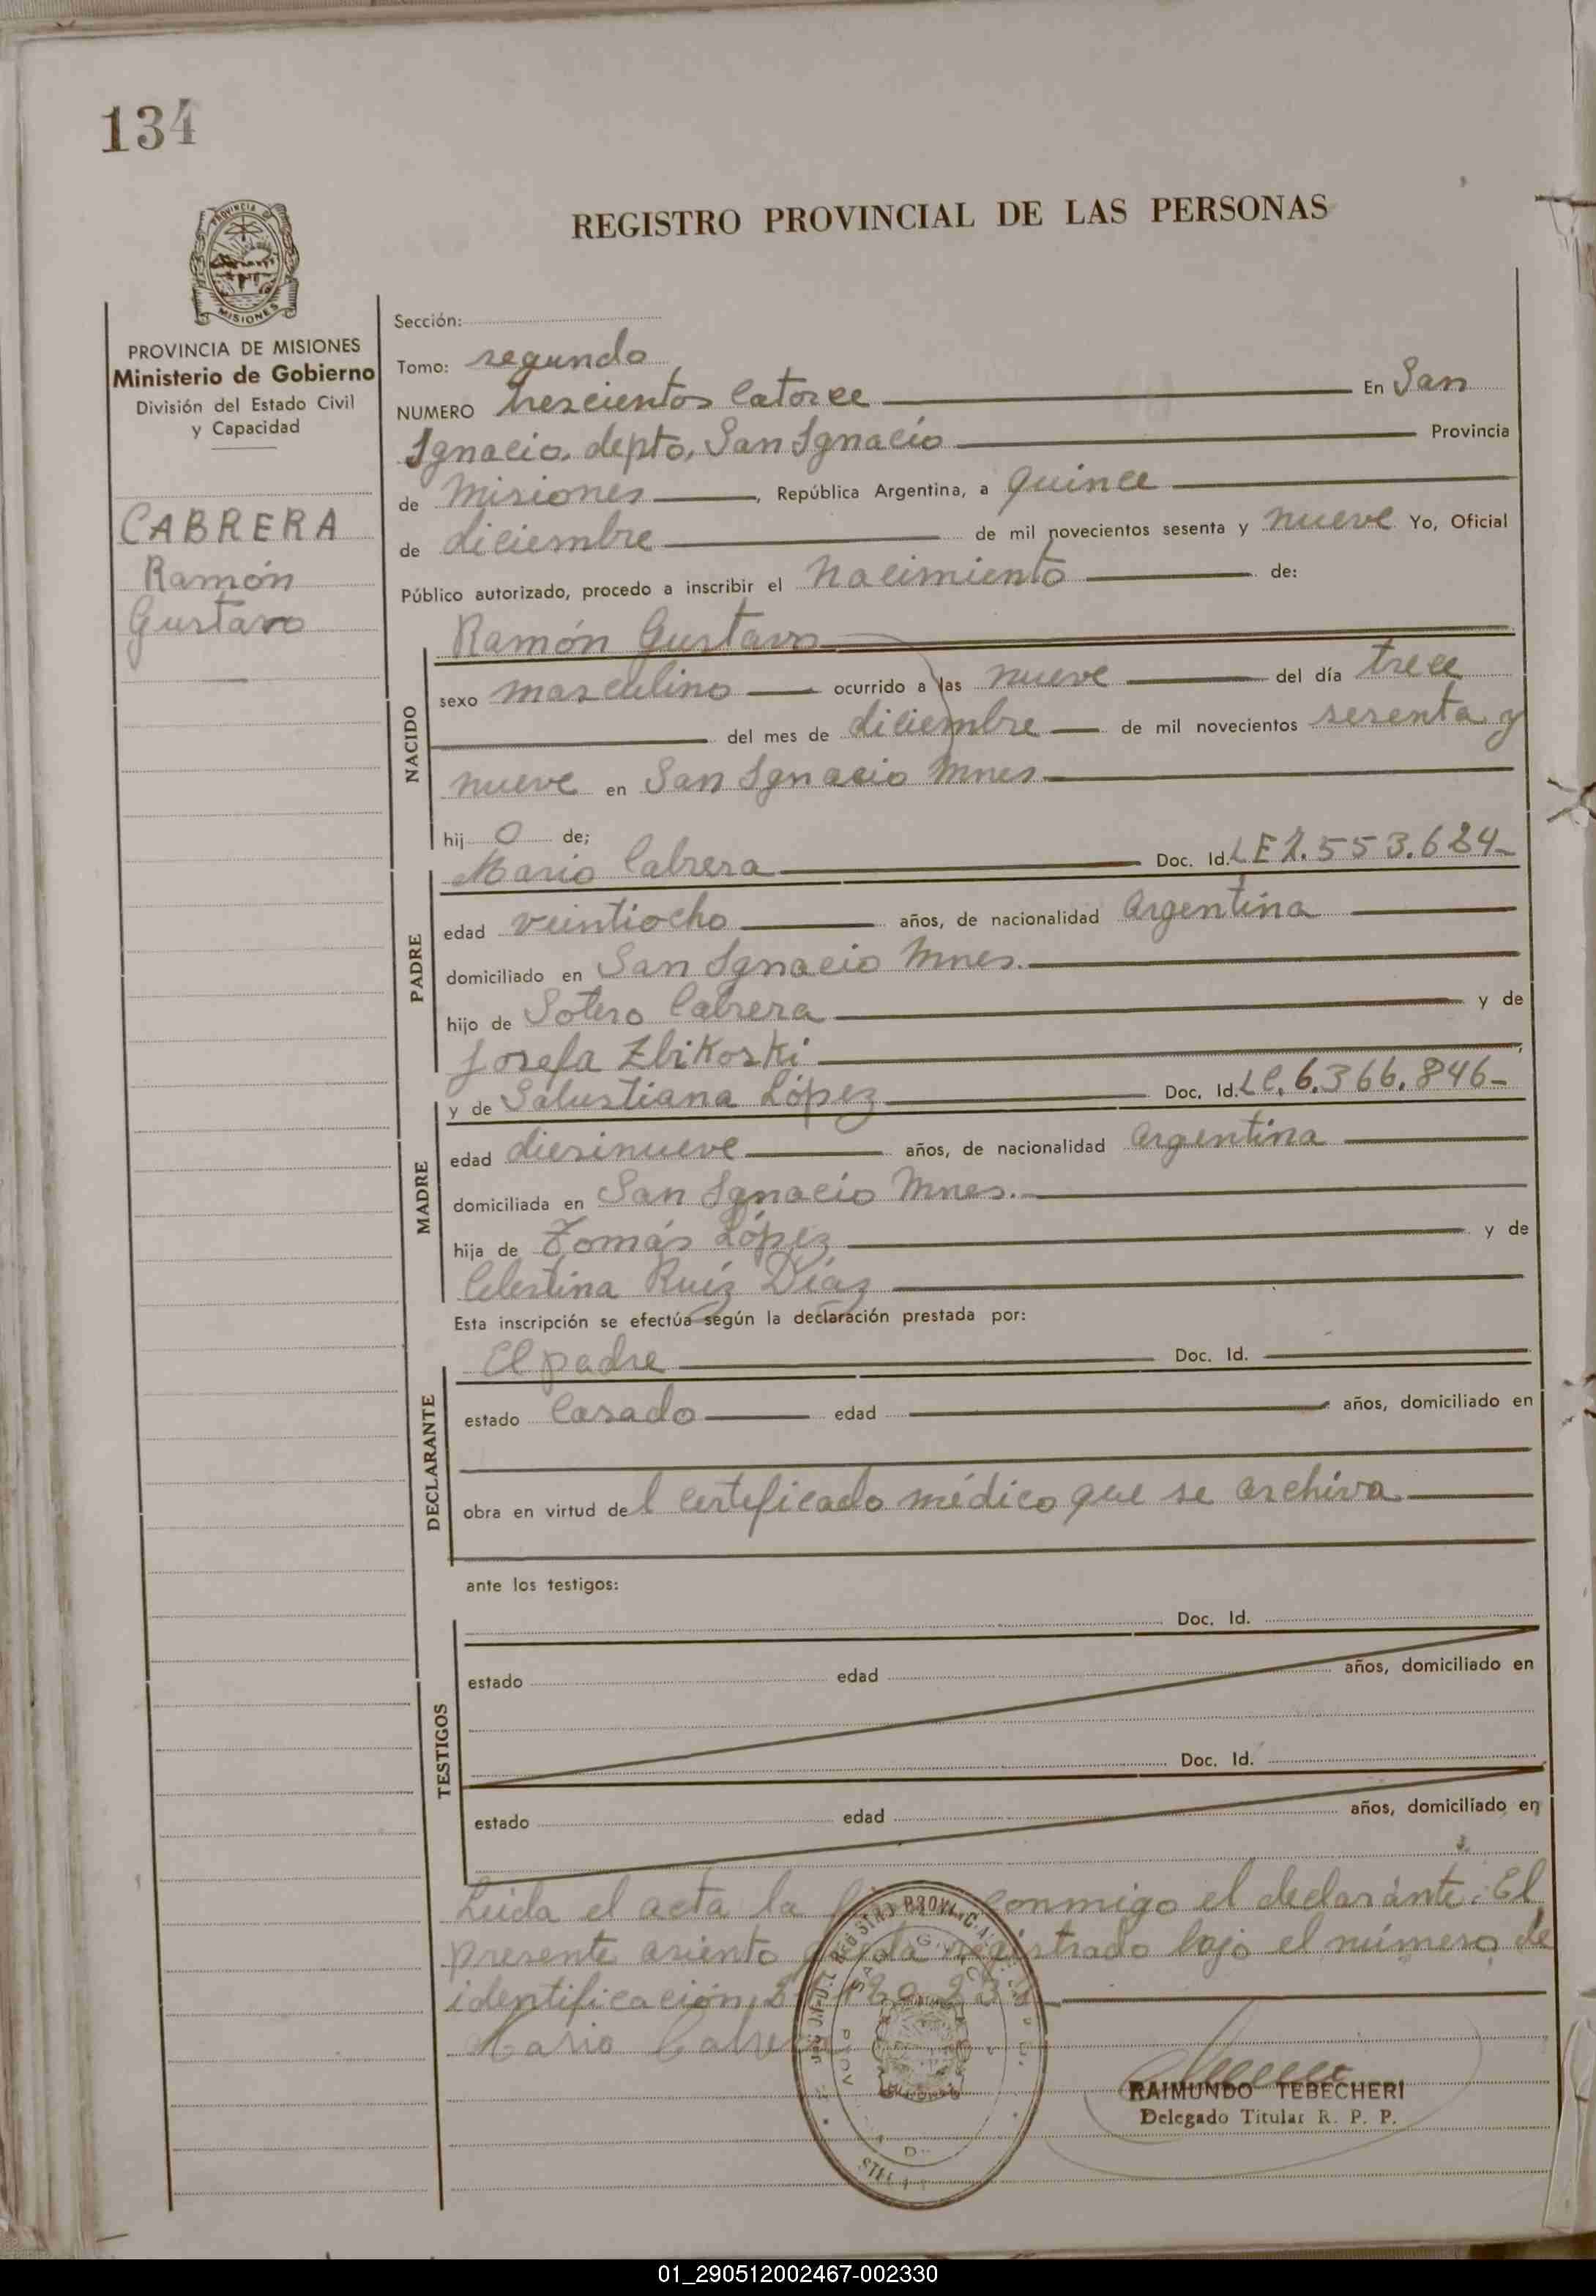 134
REGISTRO PROVINCIAL DE LAS PERSONAS
PROVINCIA DE MISIONES
Ministerio de Gobierno
División del Estado Civil
y Capacidad
CABRERA
Ramón
Gustavo
Sección:
Tomo: segundo
NUMERO trescientos catorce En San
Ignacio, depto, San Ignacio Provincia
de Misiones, República Argentina, a quince
de diciembre de mil novecientos sesenta y nueve Yo, Oficial
Público autorizado, procedo a inscribir el nacimiento de:
NACIDO
Ramón Gustavo
sexo masculino ocurrido a las nueve del día trece
del mes de diciembre de mil novecientos sesenta y
nueve en San Ignacio Mnes
hijo de;
PADRE
Mario Cabrera Doc. Id. LE 7.553.684
edad veintiocho años, de nacionalidad Argentina
domiciliado en San Ignacio Mnes.
hijo de Sotero Cabrera y de
Josefa Zbikoski
MADRE
y de Salustiana López Doc. Id. LC. 6.366.846
edad diesinueve años, de nacionalidad Argentina
domiciliada en San Ignacio Mnes.
hija de Tomás López y de
Celestina Ruíz Díaz
Esta inscripción se efectúa según la declaración prestada por:
DECLARANTE
El padre Doc. Id.
estado Casado edad años, domiciliado en
obra en virtud del certificado médico que se archiva
ante los testigos:
TESTIGOS
Doc. Id.
estado edad años, domiciliado en
Doc. Id.
estado edad años, domiciliado en
Leída el acta la conmigo el declarante. El
presente asiento queda registrado bajo el número de
identificación
Mario Cabrera
RAIMUNDO TEBECHERI
Delegado Titular R. P. P.
01_290512002467-002330